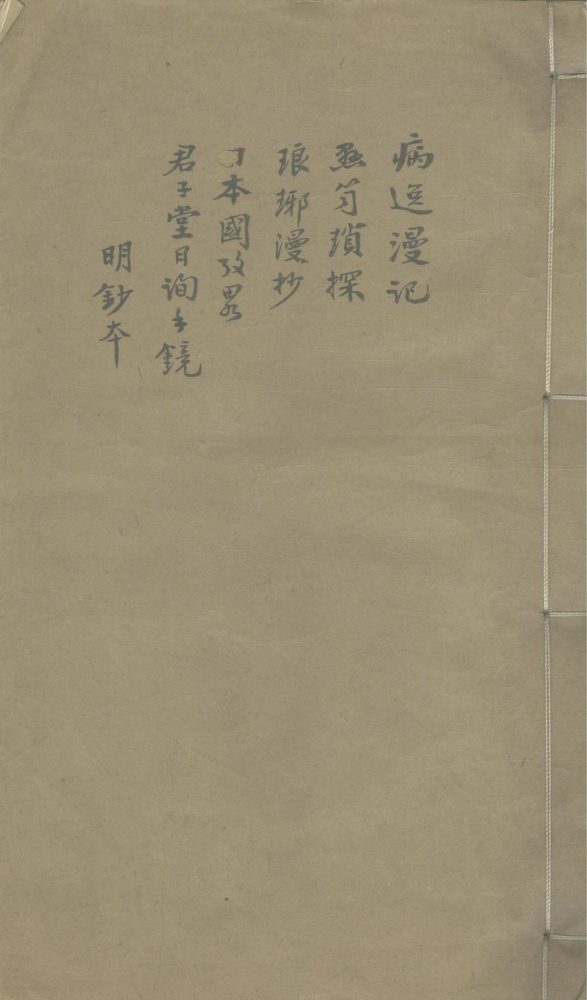 病逸漫记
蠡笏瑣探
琅琊漫抄
日本國攷畧
君子堂日詢手鏡
明鈔本